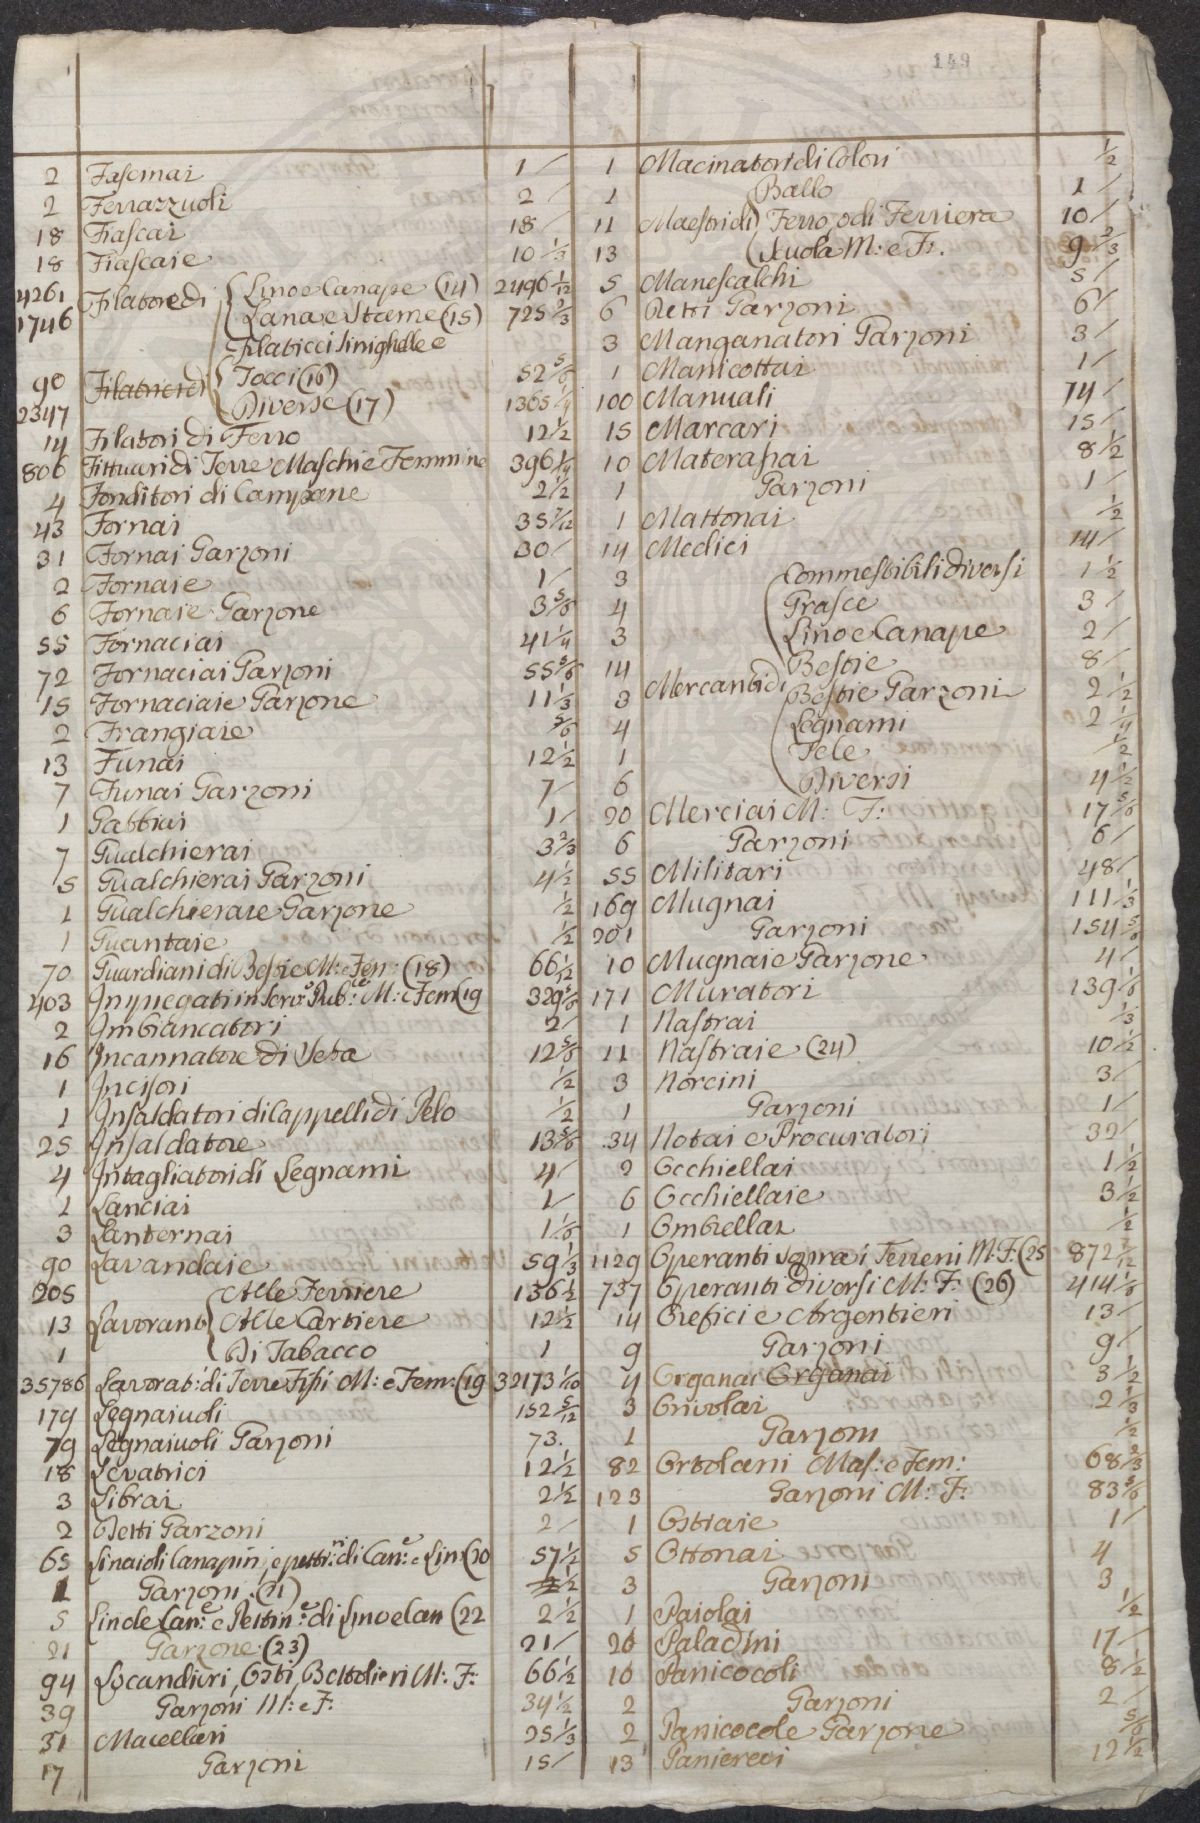 149
2 Fascinai 1/
2 Ferrazzuoli 2/
18 Fiascai 18/
18 Fiascaie 10 1/3
4261 Filatore di Lino e Canape (14) 2496 1/12
1746 Lana e Stame (15) 725 2/3
Filaticci Sinighelle e
90 Filatrice di Tocci (16) 52 5/6
2347 Diverse (17) 1365 1/4
14 Filatori di Ferro 12 1/2
806 Fittuari di Terre Maschi e Femmine 396 1/4
4 Fonditori di Campane 2 1/2
43 Fornai 35 7/12
31 Fornai Garzoni 30/
2 Fornaie 1/
6 Fornaie Garzone 3 5/6
55 Fornaciai 41 1/4
72 Fornaciai Garzoni 55 5/6
15 Fornaciaie Garzone 11 1/3
2 Frangiaie 5/6
13 Funai 12 1/2
7 Funai Garzoni 7/
1 Gabbiai 1/
7 Gualchierai 3 2/3
5 Gualchierai Garzoni 4 1/2
1 Gualchieraie Garzone 1/2
1 Guantaie 1/2
70 Guardiani di Bestie M: e Fem: (18) 66 1/12
403 Inpiegati in Serv:e Pub:ce M: e Fem (19 329 5/6
2 Imbiancatori 2/
16 Incannatore di Seta 12 5/6
1 Incisori 1/2
1 Insaldatori di Cappelli di Pelo 1/2
25 Insaldatore 13 5/6
4 Intagliatori di Legnami 4/
1 Lanciai 1/
3 Lanternai 1 1/6
90 Lavandaie 59 1/3
205 Alle Ferriere 136 1/2
13 Lavoranti Alle Cartiere 12 1/2
1 Di Tabacco 1
35786 Lavorat: di Terre Fissi M: e Fem: (19 32173 1/10
179 Legnaiuoli 152 5/12
79 Legnaiuoli Garzoni 73.
18 Levatrici 12 1/2
3 Librai 2 1/2
2 Detti Garzoni 2/
65 Linaioli Canapini, e pettin:ri di Can:e e Lin: (20 57 1/2
1 Garzoni (21) 1/2
5 Linole Can:e e Pettin:e di Lino e Can (22 2 1/2
21 Garzone (23) 21/
94 Locandieri, Osti, Bettolieri M: F: 66 1/2
39 Garzoni M: e F: 34 1/2
31 Macellari 25 1/3
17 Garzoni 15/
1 Macinatori di Colori 1/2
1 Ballo 1/
11 Maestri di Ferro, o di Ferriera 10/
13 Scuola M: e F: 9 2/3
5 Manescalchi 5/
6 Detti Garzoni 6/
3 Manganatori Garzoni 3/
1 Manicottai 1/
100 Manuali 74/
15 Marcari 15/
10 Materassai 8 1/2
1 Garzoni 1/
1 Mattonai 1/2
14 Medici 14/
3 Commestibili diversi 1 1/2
4 Grasce 3/
3 Lino e Canape 2/
14 Bestie 8/
3 Mercanti di Bestie Garzoni 2 1/2
4 Legnami 2 1/4
1 Tele 1/2
6 Diversi 4 1/2
20 Merciai M: F: 17 5/6
6 Garzoni 6/
55 Militari 48/
169 Mugnai 111 1/3
201 Garzoni 154 5/6
10 Mugnaie Garzone 4/
171 Muratori 139 1/6
1 Nastrai 1/3
11 Nastraie (24) 10 1/2
3 Norcini 3/
1 Garzoni 1/
34 Notai e Procuratori 32/
2 Occhiellai 1 1/2
6 Occhiellaie 3 1/2
1 Ombrellai 1/2
1129 Operanti sopra i Terreni M: F: (25 872 7/12
737 Operanti diversi M: F: (26) 414 1/6
14 Orefici e Argentieri 13/
9 Garzoni 9/
4 Organai Organai 3 1/2
3 Orivolai 2 1/3
1 Garzoni 1/2
82 Ortolani Mas: e Fem: 68 2/3
123 Garzoni M: F: 83 5/6
1 Ostiaie 1/
5 Ottonai 4
3 Garzoni 3
1 Paiolai 1/2
26 Paladini 17/
10 Panicocoli 8 1/2
2 Garzoni 2/
2 Panicocole Garzone 5/6
13 Panierai 12 1/2